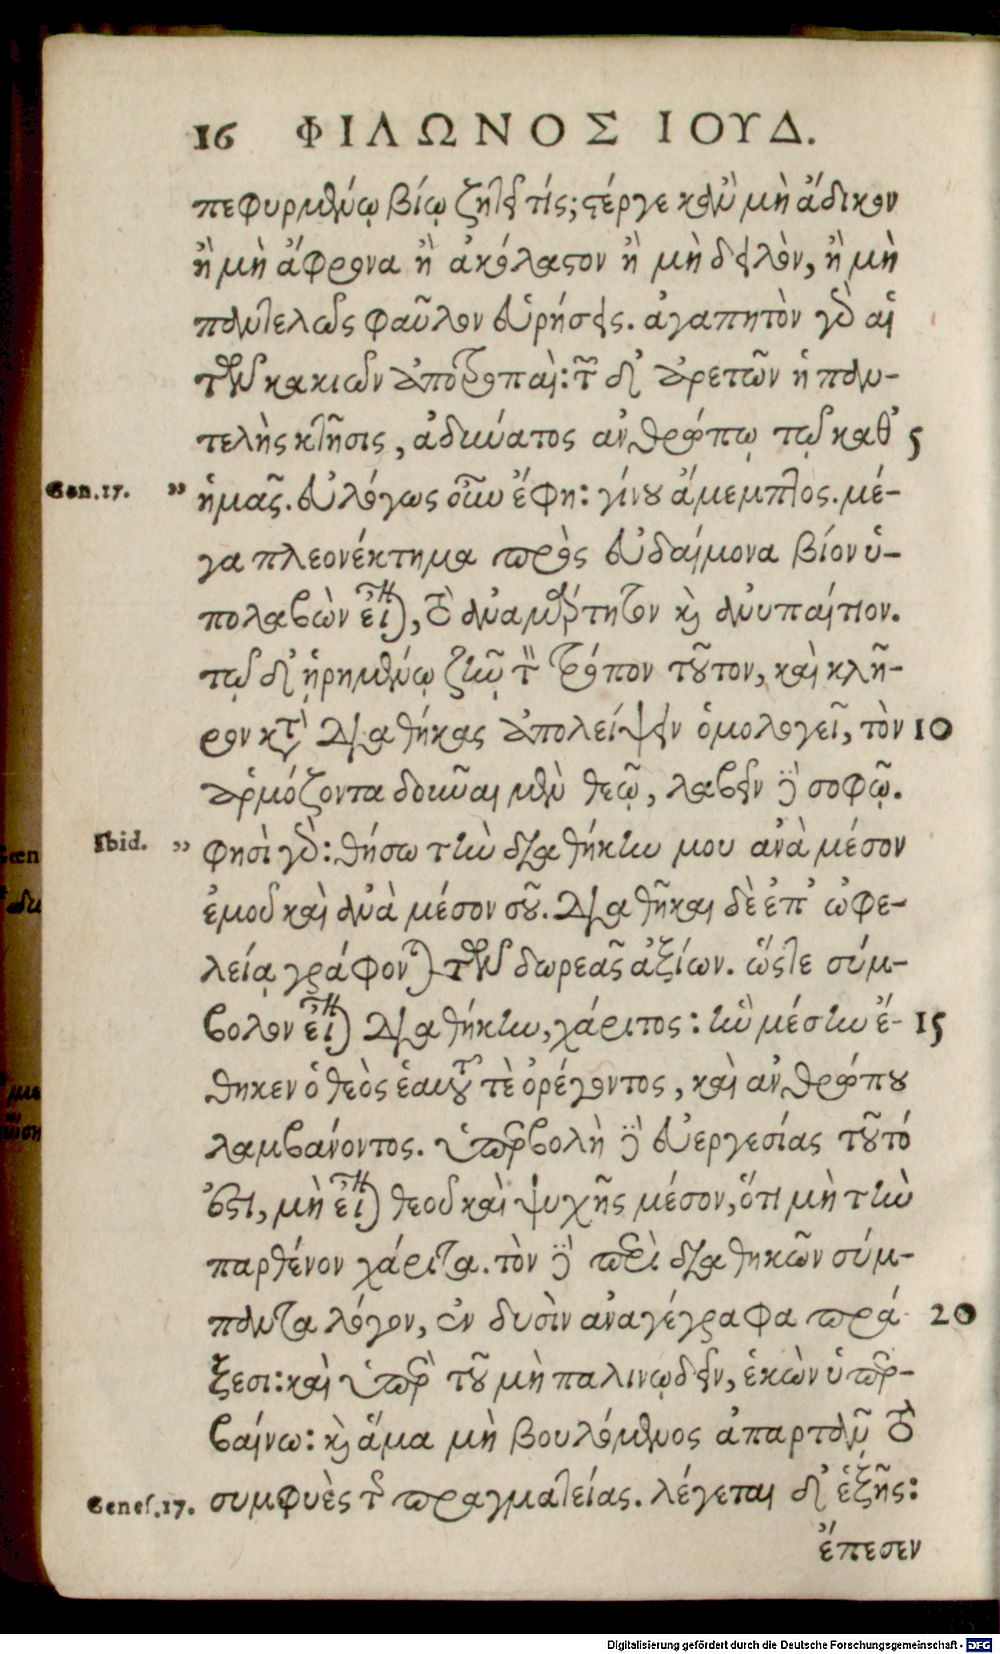 16 ΦΙΛΩΝΟΣ ΙΟΥΔ.
πεφυρμένῳ βίῳ ζητεῖ τίς; στέργε κἂν μὴ ἄδικον
ἢ μὴ ἄφρονα ἢ ἀκόλαστον ἢ μὴ δειλὸν, ἢ μὴ
παντελῶς φαῦλον εὑρήσεις. ἀγαπητὸν γὰρ αἱ
τῶν κακιῶν ἀποτροπαὶ: τῶν δ' ἀρετῶν ἡ παν-
τελὴς κτῆσις, ἀδύνατος ἀνθρώπῳ τῷ καθ' 5
Gen.17. " ἡμᾶς. εὐλόγως οὖν ἔφη: γίνου ἄμεμπτος. μέ-
γα πλεονέκτημα πρὸς εὐδαίμονα βίον ὑ-
πολαβὼν εἶναι, τὸ ἀναμάρτητον καὶ ἀνυπαίτιον.
τῷ δ' ᾑρημένῳ ζῆν τὸν τρόπον τοῦτον, καὶ κλῆ-
ρον κατὰ διαθήκας ἀπολείψειν ὁμολογεῖ, τὸν 10
ἁρμόζοντα δοῦναι μὲν θεῷ, λαβεῖν δὲ σοφῷ.
Ibid. " φησὶ γὰρ: θήσω τὴν διαθήκην μου ἀνὰ μέσον
ἐμοῦ καὶ ἀνὰ μέσον σοῦ. διαθῆκαι δὲ ἐπ' ὠφε-
λείᾳ γράφονται τῶν δωρεᾶς ἀξίων. ὥστε σύμ-
βολον εἶναι διαθήκην, χάριτος: ἣν μέσην ἔ- 15
θηκεν ὁ θεὸς ἑαυτοῦ τὲ ὀρέγοντος, καὶ ἀνθρώπου
λαμβάνοντος. ὑπερβολὴ δὲ εὐεργεσίας τοῦτό
ἐστι, μὴ εἶναι θεοῦ καὶ ψυχῆς μέσον, ὅτι μὴ τὴν
παρθένον χάριτα. τὸν δὲ περὶ διαθηκῶν σύμ-
παντα λόγον, ἐν δυσὶν ἀναγέγραφα πρά 20
ξεσι: καὶ ὑπὲρ τοῦ μὴ παλινῳδεῖν, ἑκὼν ὑπερ-
βαίνω: καὶ ἅμα μὴ βουλόμενος ἀπαρτᾶν τὸ
Genes.17. συμφυὲς τῆς πραγματείας. λέγεται δ' ἑξῆς:
ἔπεσεν
Digitalisierung gefördert durch die Deutsche Forschungsgemeinschaft - DFG